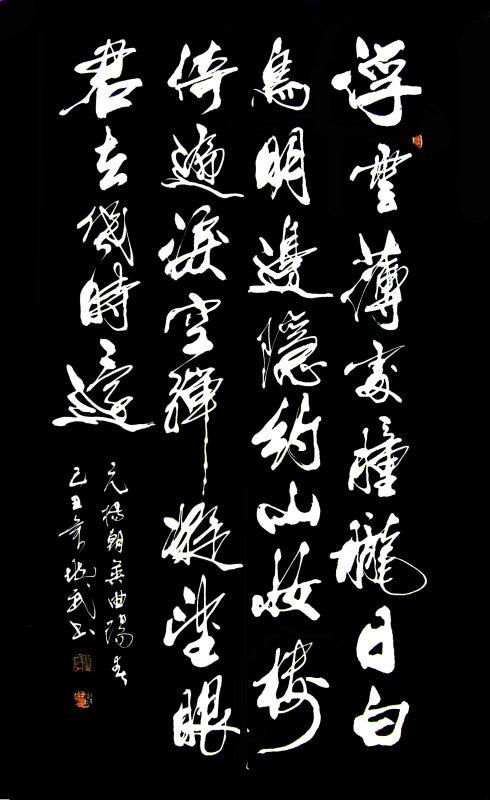 浮雲薄處朣朧日白
鳥明邊隱約山妝樓
倚遍淚空彈凝望眼
君去幾時還
元楊朝英曲陽春
己丑年武书